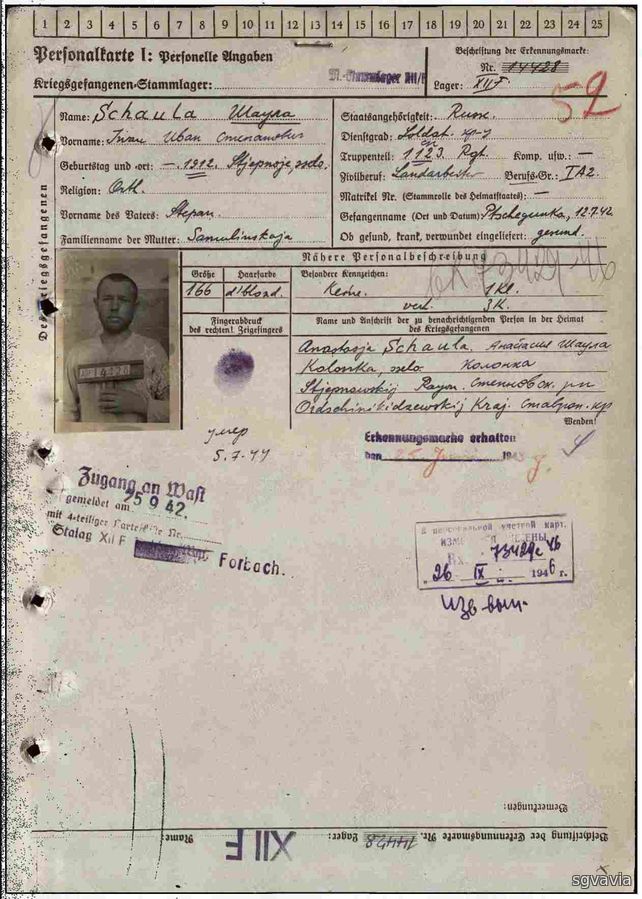 1 2 3 4 5 6 7 8 9 10 11 12 13 14 15 16 17 18 19 20 21 22 23 24 25
Personalkarte I: Personelle Angaben
Kriegsgefangenen-Stammlager:
Beschriftung der Erkennungsmarke:
Nr. 14428
Lager: XII F
52
Des Kriegsgefangenen
Name: Schaula Шаула
Vorname: Iwan Иван Степанович
Geburtstag und -ort: –. 1912. Stjepnoje,
Religion: Orth.
Vorname des Vaters: Stepan.
Familienname der Mutter: Samulinskaja
Staatsangehörigkeit: Russe.
Dienstgrad: Soldat. кр-ц
Truppenteil: 1123. Rgt. Komp. usw.: –
Zivilberuf: Landarbeiter Berufs-Gr.: IA2
Matrikel Nr. (Stammrolle des Heimatstaates): –
Gefangenname (Ort und Datum) 12.7.42
Ob gesund, krank, verwundet eingeliefert: gesund.
Nähere Personalbeschreibung
Größe Haarfarbe Besondere Kennzeichen:
166 d'blond. Keine.
1 Kl.
verh. 3 K.
Fingerabdruck
des rechten! Zeigefingers
Name und Anschrift der zu benachrichtigenden Person in der Heimat
des Kriegsgefangenen
Anastasja Schaula. Анастасия Шаула
Kolonka, Колонка
Stjepnowskij Rayon. р-н
Kraj.
Wenden!
умер
5.7.44
Erkennungsmarke erhalten
den 194
Zugang an Wast
gemeldet am 25 9 42.
mit 4-teiliger Karteikarte Nr.
Stalag XII F Forbach.
В персональной учетной карт.
73429с 46
"26 IX 1946 г.
Bemerkungen:
Beschriftung der Erkennungsmarke Nr. 14428 Lager: XII F Name:
sgvavia